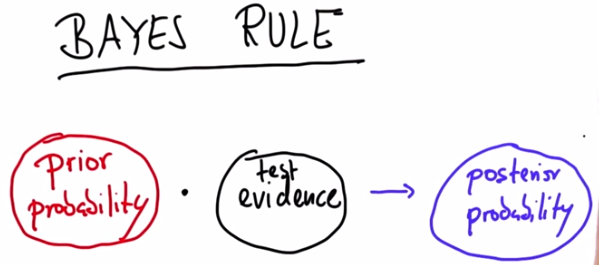 BAYES RULE
prior
probability
.
test
evidence
→
posterior
probability